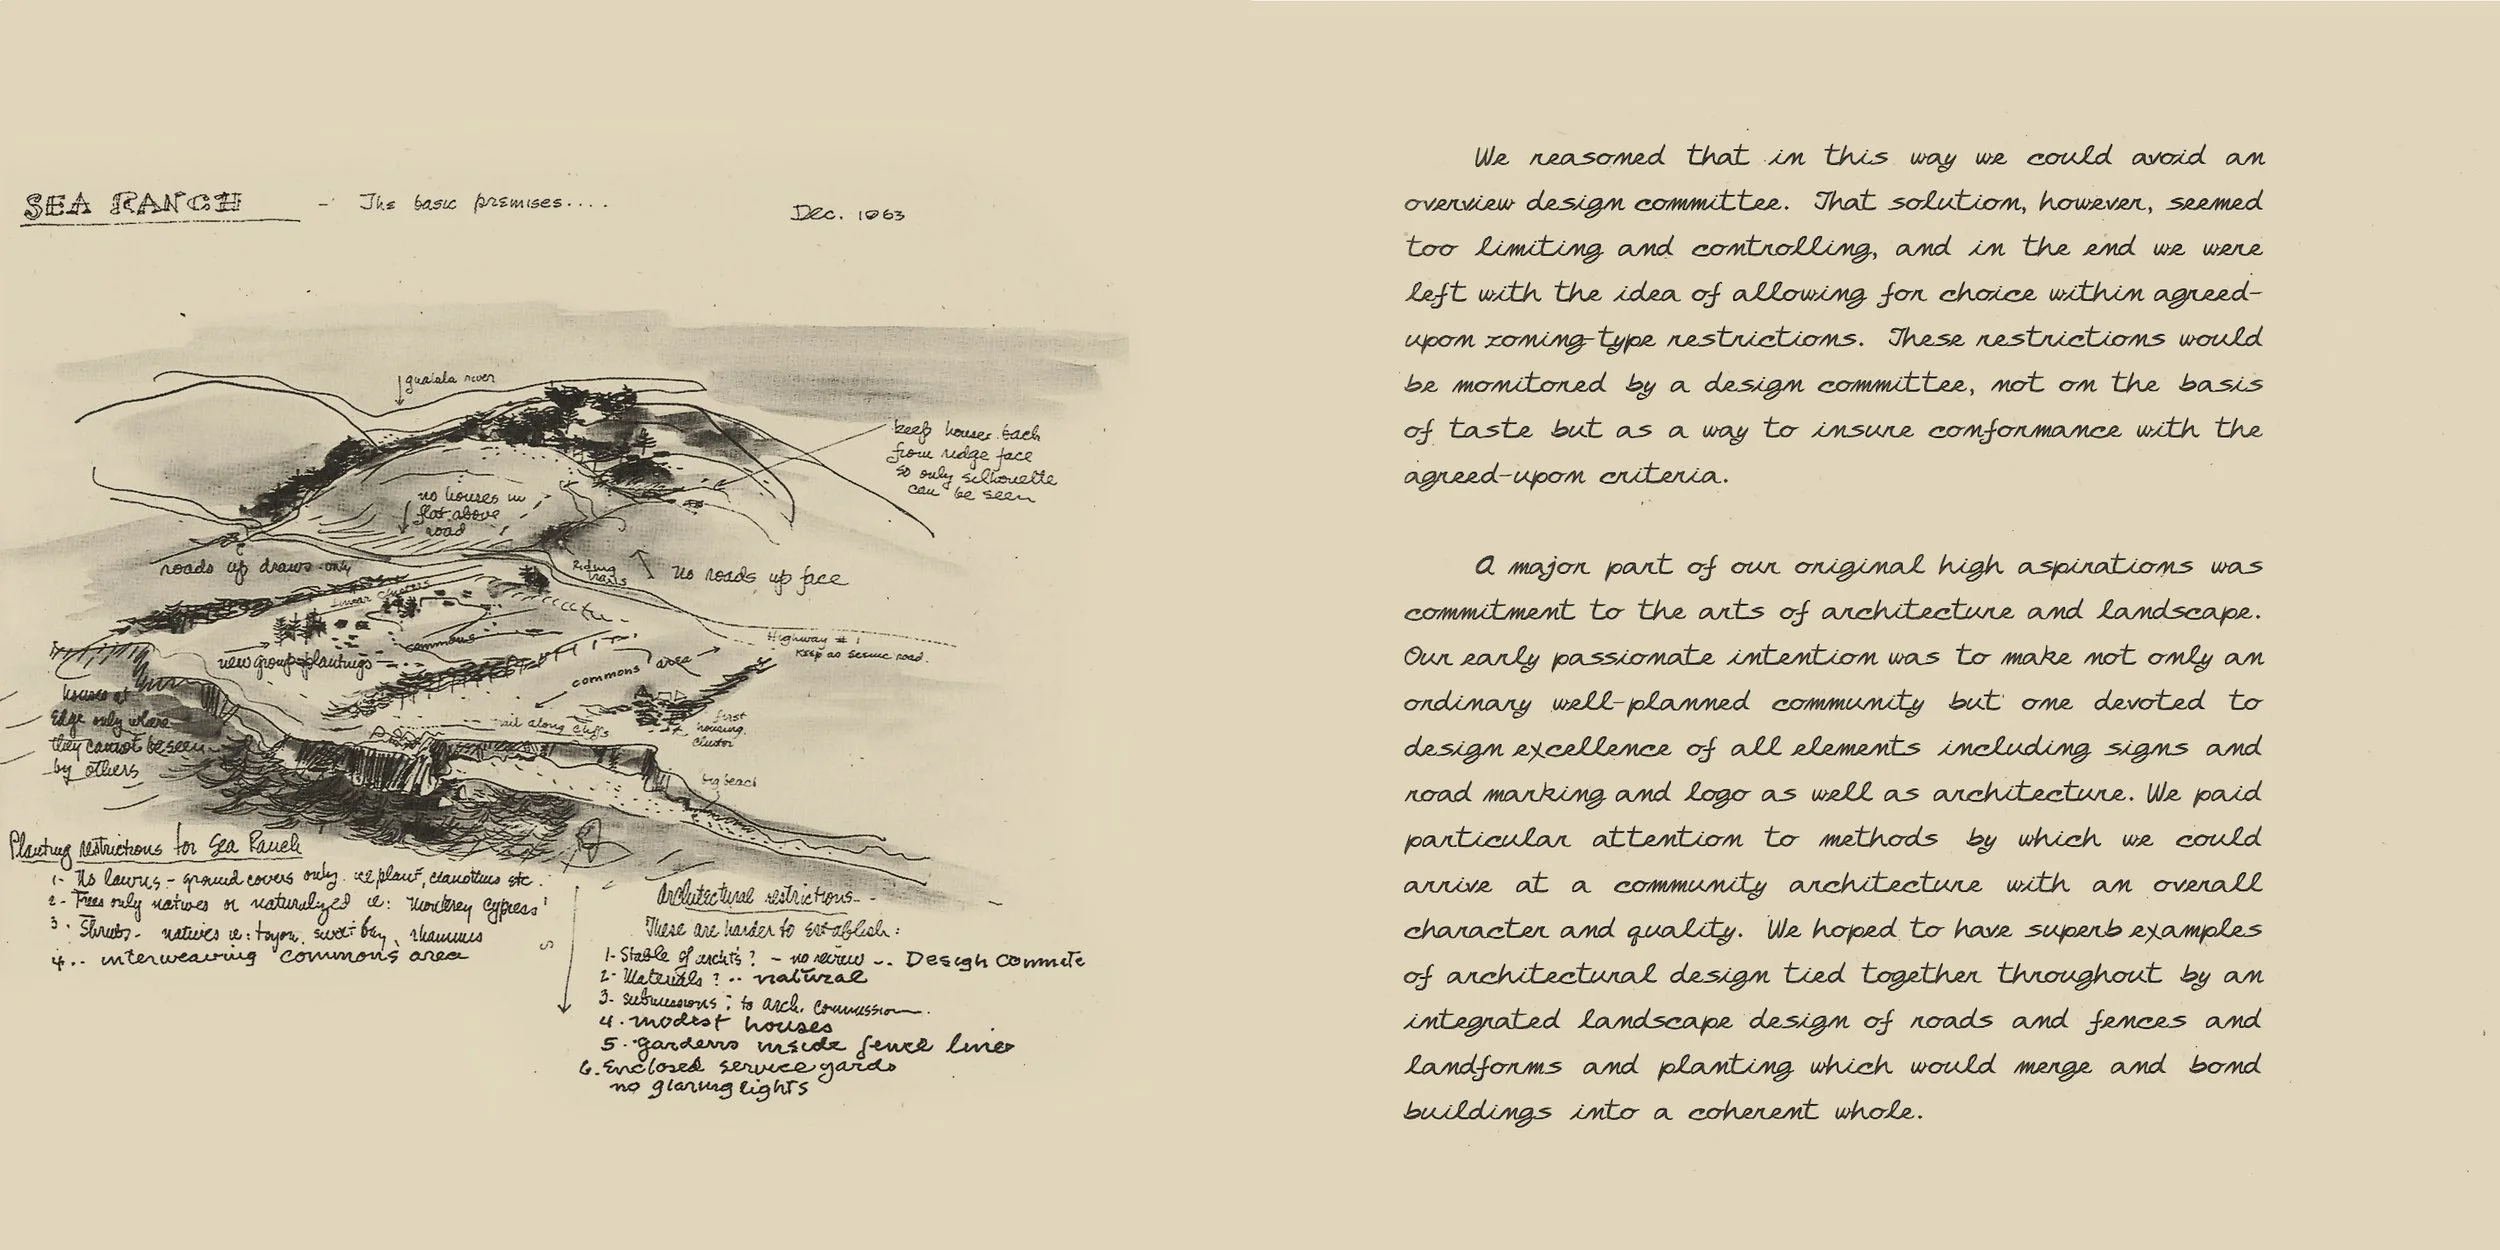 SEA RANCH - The basic premises....
Dec. 1963
gualala river
keep houses back
from ridge face
so only silhouette
can be seen
no houses in
flat above
road
roads up draws only
Riding
trails
No roads up face
linear clusters
commons
Highway # 1
Keep as scenic road.
new group plantings
commons area
houses at
Edge only where
they cannot be seen
by others
trail along cliffs
first
housing
cluster
big beach
Planting restrictions for Sea Ranch
1- No lawns - ground covers only. ice plant, ceanothus etc.
2- Trees only natives or naturalized ie: Monterey Cypress
3. Shrubs- natives ie: toyon, sweet bay, rhamnus
4.. interweaving commons area
S
Architectural restrictions--
These are harder to establish:
1- Stable of archts? - no review -. Design Commite
2- Materials? .. natural
3- submissions: to arch. commission.
4. modest houses
5. gardens inside fence lines
6. Enclosed service yards
no glaring lights
We reasoned that in this way we could avoid an
overview design committee. That solution, however, seemed
too limiting and controlling, and in the end we were
left with the idea of allowing for choice within agreed-
upon zoning-type restrictions. These restrictions would
be monitored by a design committee, not on the basis
of taste but as a way to insure conformance with the
agreed-upon criteria.
A major part of our original high aspirations was
commitment to the arts of architecture and landscape.
Our early passionate intention was to make not only an
ordinary well-planned community but one devoted to
design excellence of all elements including signs and
road marking and logo as well as architecture. We paid
particular attention to methods by which we could
arrive at a community architecture with an overall
character and quality. We hoped to have superb examples
of architectural design tied together throughout by an
integrated landscape design of roads and fences and
landforms and planting which would merge and bond
buildings into a coherent whole.